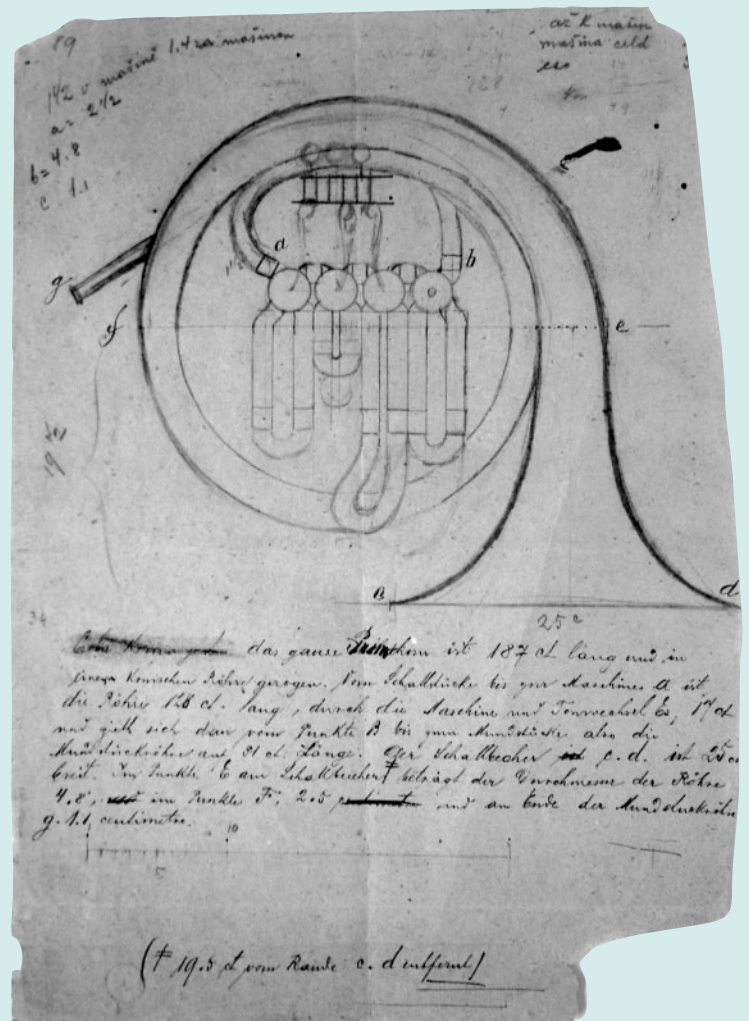 89
142 v mašině 1.4 za mašinou
a = 2 1/2
b = 4.8
c 1.1
až k mašin
mašina celd
a
b
g
f
e
19
B
d
25 c
34
das ganze Primhorn ist 187 ct lang und in
einem konischen Röhre gezogen. Vom Schallstücke bis zur Maschines a ist
die Röhre 128 ct. lang, durch die Maschine und Tonwechsel Es, 17 ct
und zieht sich dan vom Punkte B bis zum Mundstücke also die
Mundstückröhre auf 31 ct. Länge. Der Schallbecher ist c. d. ist 25 c
breit. Im Punkte E am Schallbecher ‡ beträgt der Durchmesser der Röhre
4.8, im Punkte F, 2.5 centimetre und am Ende der Mundstückröhre
g. 1.1 centimetre.
10
5
(‡ 19.5 ct vom Rande c. d entfernt)